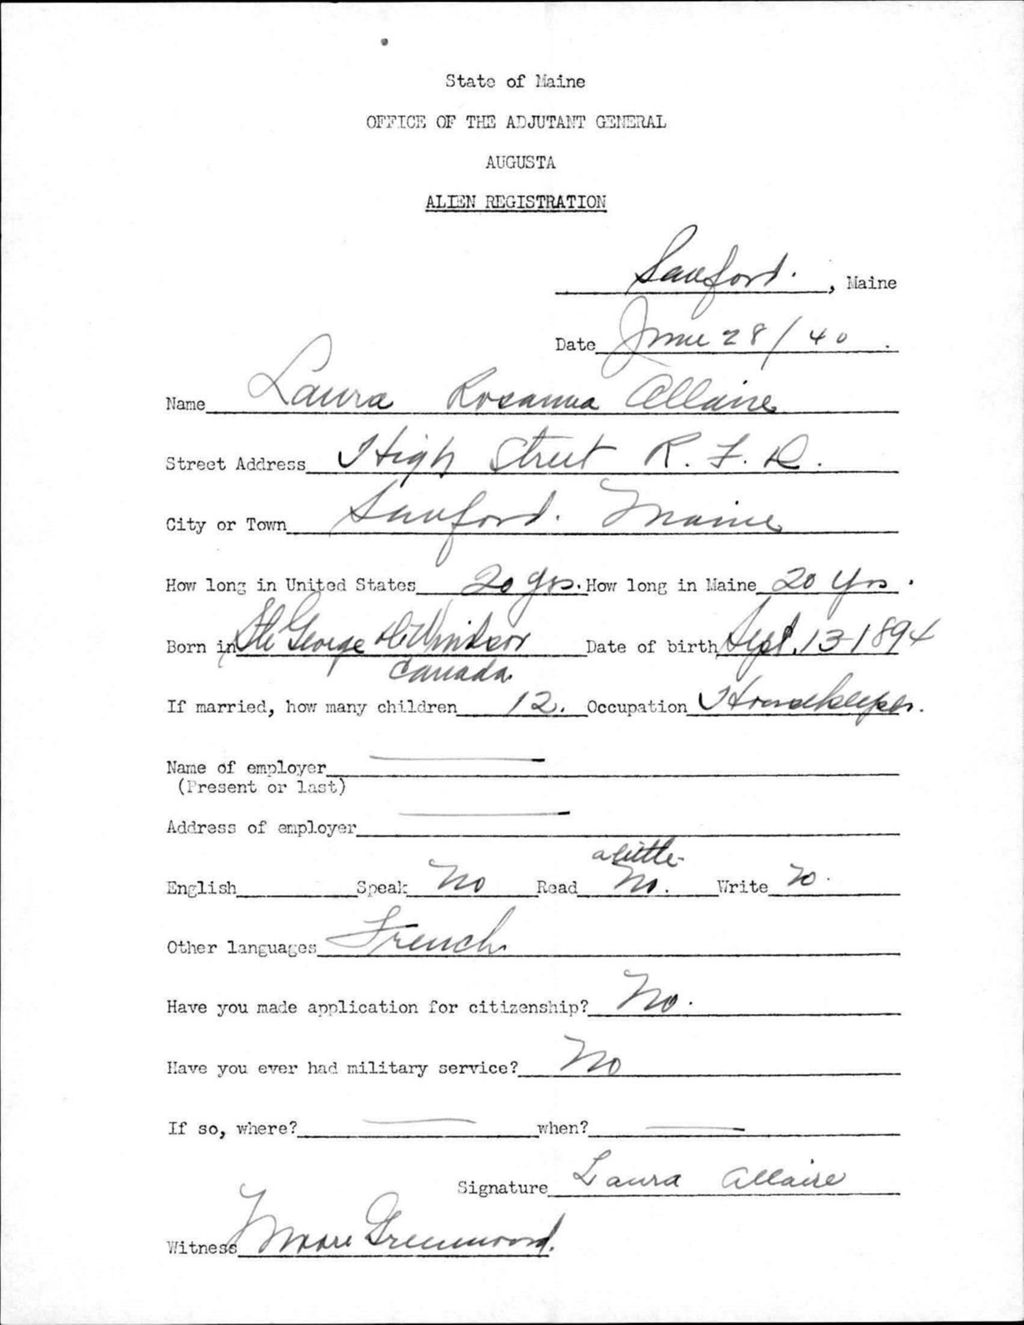 State of Maine
OFFICE OF THE ADJUTANT GENERAL
AUGUSTA
ALIEN REGISTRATION
Sanford. , Maine
Date June 28/40 .
Name Laura Rosanna Allaire
Street Address High Street R. F. D.
City or Town Sanford. Maine
How long in United States 20 yrs. How long in Maine 20 yrs .
Born in St George Windsor Date of birth Sept. 13-1894
Canada
If married, how many children 12. Occupation Housekeeper.
Name of employer
(Present or last)
Address of employer
a little
English Speak No Read No. Write No.
Other languages French
Have you made application for citizenship? No.
Have you ever had military service? No
If so, where? when?
Signature Laura Allaire
Witness Greenwood.